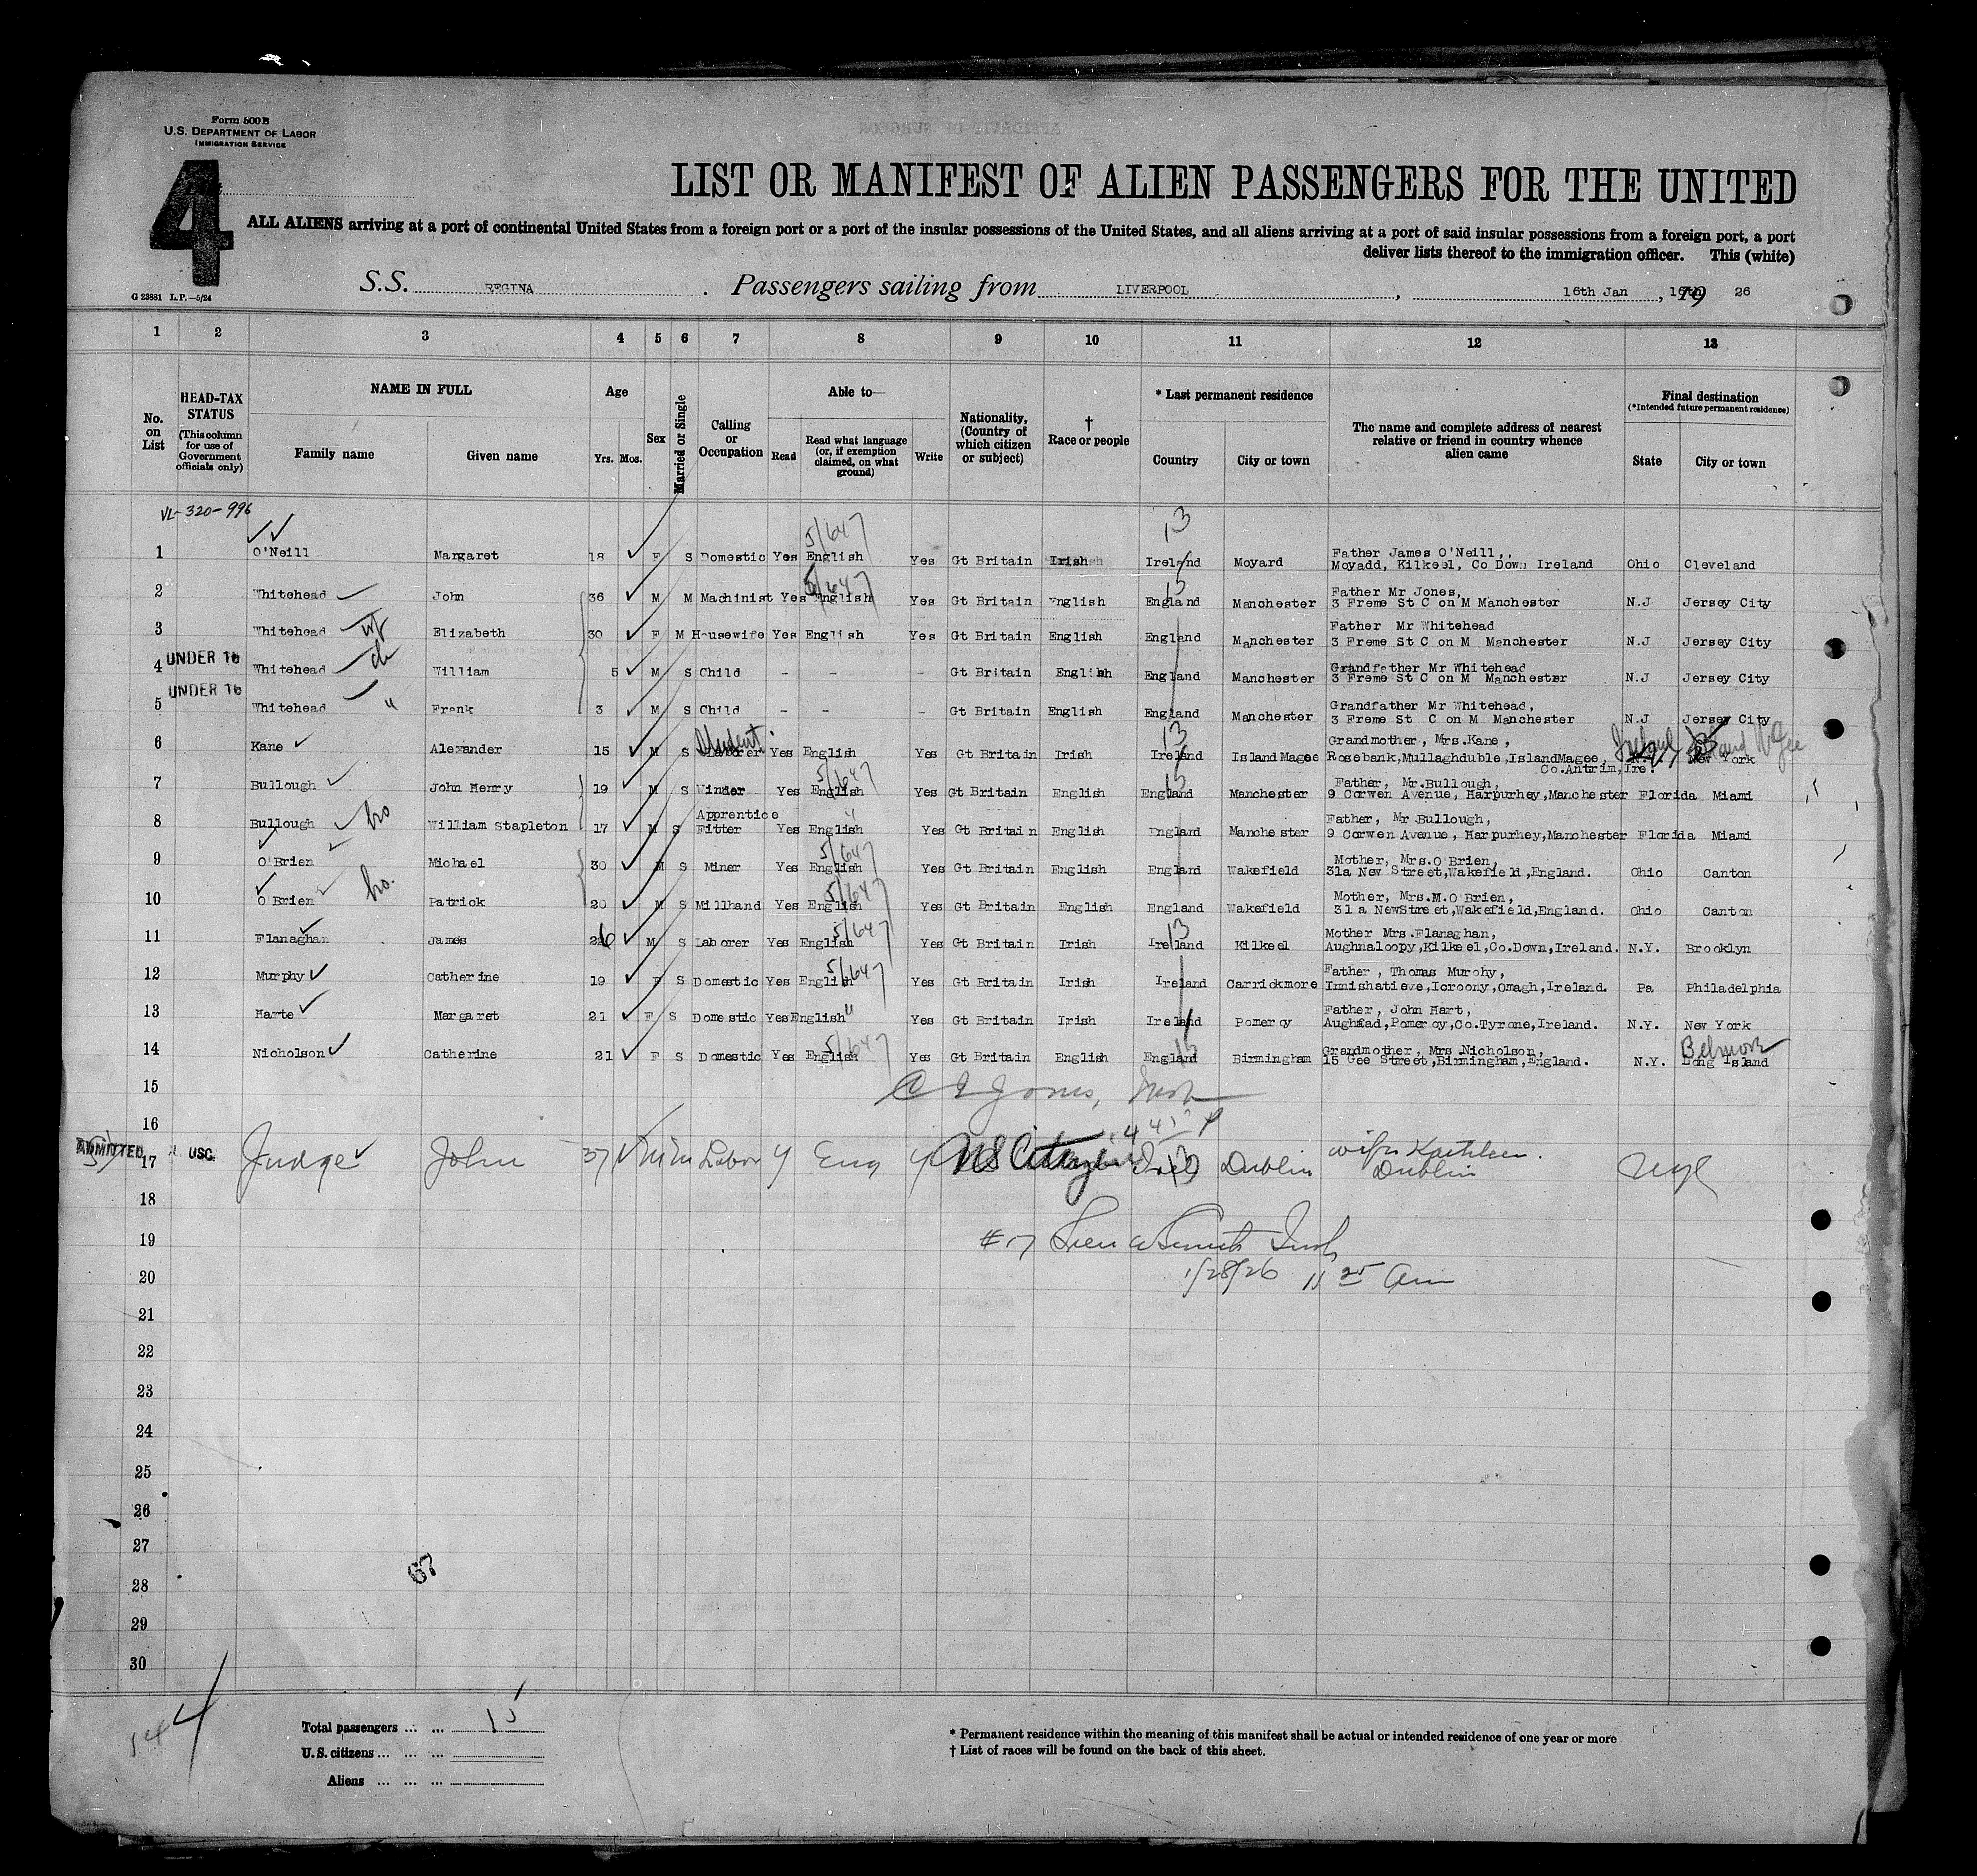 Form 500B
U.S. DEPARTMENT OF LABOR
IMMIGRATION SERVICE
4
LIST OR MANIFEST OF ALIEN PASSENGERS FOR THE UNITED
ALL ALIENS arriving at a port of continental United States from a foreign port or a port of the insular possessions of the United States, and all aliens arriving at a port of said insular possessions from a foreign port, a port
deliver lists thereof to the immigration officer. This (white)
G 23881 L.P.—5/24
S.S. REGINA . Passengers sailing from LIVERPOOL , 16th Jan , 19 26
1 2 3 4 5 6 7 8 9 10 11 12 13
No. on List
HEAD-TAX STATUS
(This column for use of Government officials only)
NAME IN FULL
Family name Given name
Age
Yrs. Mos.
Sex
Married or Single
Calling or Occupation
Able to—
Read
Read what language (or, if exemption claimed, on what ground)
Write
Nationality, (Country of which citizen or subject)
† Race or people
* Last permanent residence
Country City or town
The name and complete address of nearest relative or friend in country whence alien came
Final destination
(*Intended future permanent residence)
State City or town
VL-320-996
5/647 13
1 O'Neill Margaret 18 F S Domestic Yes English Yes Gt Britain Irish Ireland Moyard Father James O'Neill,, Moyadd, Kilkeel, Co Down Ireland Ohio Cleveland
5/647 13
2 Whitehead John 36 M M Machinist Yes English Yes Gt Britain English England Manchester Father Mr Jones, 3 Freme St C on M Manchester N.J Jersey City
3 Whitehead wf Elizabeth 30 F M Housewife Yes English Yes Gt Britain English England Manchester Father Mr Whitehead 3 Freme St C on M Manchester N.J Jersey City
UNDER 16
4 Whitehead ch William 5 M S Child - - - Gt Britain English England Manchester Grandfather Mr Whitehead 3 Freme St C on M Manchester N.J Jersey City
UNDER 16
5 Whitehead " Frank 3 M S Child - - - Gt Britain English England Manchester Grandfather Mr Whitehead, 3 Freme St C on M Manchester N.J Jersey City
Student 13 Ireland
6 Kane Alexander 15 M S Laborer Yes English Yes Gt Britain Irish Ireland IslandMagee Grandmother, Mrs.Kane, Rosebank,Mullaghduble,IslandMagee, Co.Antrim,Ire. N.Y. New York
5/647 13
7 Bullough John Henry 19 M S Winder Yes English Yes Gt Britain English England Manchester Father, Mr.Bullough, 9 Corwen Avenue, Harpurhey,Manchester Florida Miami
8 Bullough bro William Stapleton 17 M S Apprentice Fitter Yes English Yes Gt Britain English England Manchester Father, Mr.Bullough, 9 Corwen Avenue, Harpurhey,Manchester Florida Miami
5/647
9 O'Brien Michael 30 M S Miner Yes English Yes Gt Britain English England Wakefield Mother, Mrs.O'Brien, 31a New Street,Wakefield,England. Ohio Canton
5/647
10 O'Brien bro. Patrick 20 M S Millhand Yes English Yes Gt Britain English England Wakefield Mother, Mrs.M.O'Brien, 31a NewStreet,Wakefield,England. Ohio Canton
5/647 13
11 Flanaghan James 26 M S Laborer Yes English Yes Gt Britain Irish Ireland Kilkeel Mother Mrs.Flanaghan, Aughnaloopy,Kilkeel,Co.Down,Ireland. N.Y. Brooklyn
5/647
12 Murphy Catherine 19 F S Domestic Yes English Yes Gt Britain Irish Ireland Carrickmore Father, Thomas Murphy, Innishatieve,Icroony,Omagh,Ireland. Pa Philadelphia
13 Harte Margaret 21 F S Domestic Yes English " Yes Gt Britain Irish Ireland Pomeroy Father, John Hart, Aughfad,Pomeroy,Co.Tyrone,Ireland. N.Y. New York
5/647 13 Belmore
14 Nicholson Catherine 21 F S Domestic Yes English Yes Gt Britain English England Birmingham Grandmother, Mrs Nicholson, 15 Gee Street,Birmingham,England. N.Y. Long Island
15 Jones,
16
ADMITTED
17 USC Judge John 37 M M Labor y Eng y US Citizen Dublin wife Kathleen. Dublin NYC
18
19 #17 Insp
20 1/28/26 11 25 am
21
22
23
24
25
26
27
28
29
30
67
Total passengers ... ... 15
U.S. citizens ... ... ...
Aliens ... ... ...
* Permanent residence within the meaning of this manifest shall be actual or intended residence of one year or more
† List of races will be found on the back of this sheet.